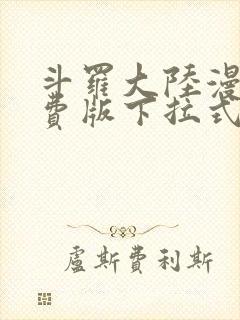 斗羅大陸漫
費版下拉式
盧斯費利斯